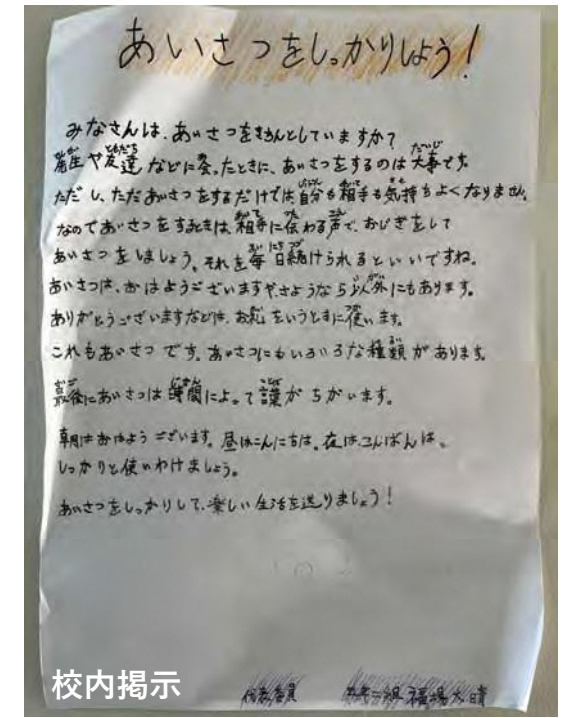 あいさつをしっかりしよう!
みなさんは、あいさつをきちんとしていますか?
先生や友達などに会ったときに、あいさつをするのは大事です。
ただし、ただあいさつをするだけでは自分も相手も気持ちよくなりません。
なのであいさつをするときは、相手に伝わる声で、おじぎをして
あいさつをしましょう。それを毎日続けられるといいですね。
あいさつは、おはようございますやさようなら以外にもあります。
ありがとうございますなどは、お礼をいうときに使います。
これもあいさつです。あいさつにもいろいろな種類があります。
最後にあいさつは時間によって言葉がちがいます。
朝はおはようございます。昼はこんにちは。夜はこんばんは。
しっかりと使いわけましょう。
あいさつをしっかりして、楽しい生活を送りましょう!
校内掲示
代表委員